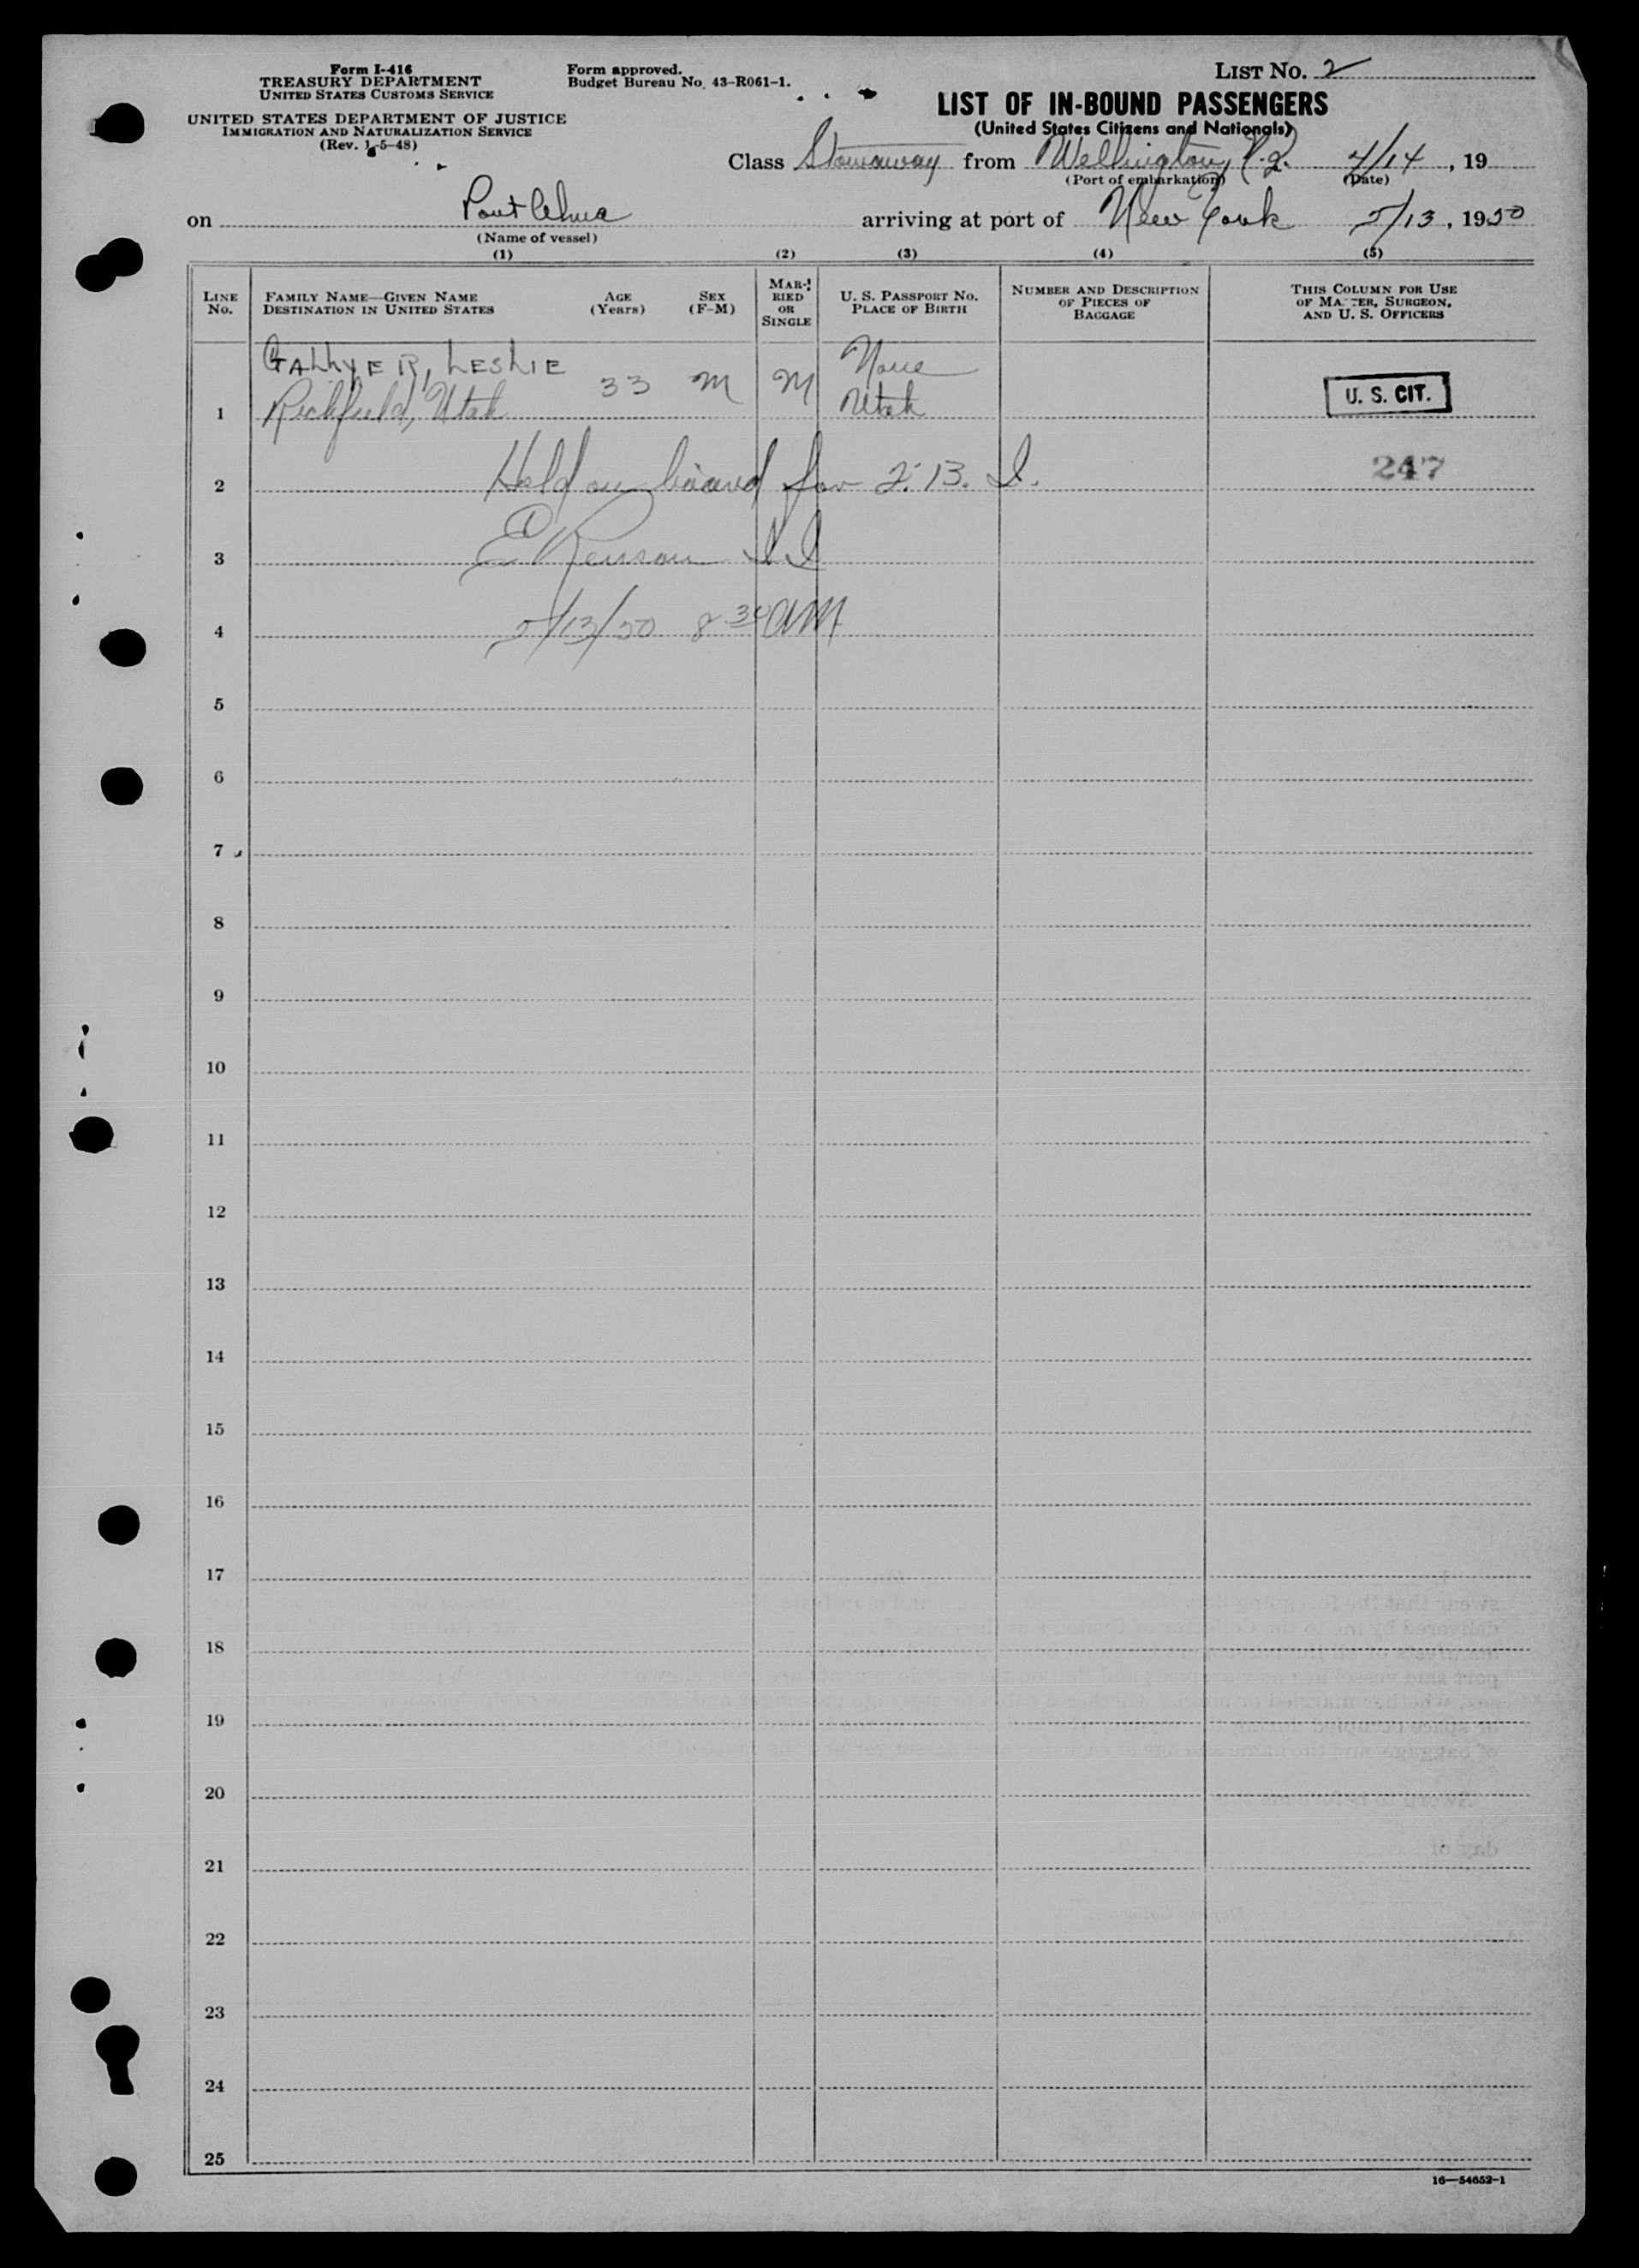 Form I-416
TREASURY DEPARTMENT
UNITED STATES CUSTOMS SERVICE
UNITED STATES DEPARTMENT OF JUSTICE
IMMIGRATION AND NATURALIZATION SERVICE
(Rev. 1-5-48)
Form approved.
Budget Bureau No. 43-R061-1.
LIST NO. 2
LIST OF IN-BOUND PASSENGERS
(United States Citizens and Nationals)
Class Stowaway from Wellington, 4/14, 19
(Port of embarkation) (Date)
on Port arriving at port of New York 5/13, 1950
(Name of vessel)
(1) (2) (3) (4) (5)
LINE NO.
FAMILY NAME—GIVEN NAME
DESTINATION IN UNITED STATES
AGE (Years)
SEX (F-M)
MARRIED OR SINGLE
U. S. PASSPORT NO.
PLACE OF BIRTH
NUMBER AND DESCRIPTION OF PIECES OF BAGGAGE
THIS COLUMN FOR USE OF MASTER, SURGEON, AND U. S. OFFICERS
GALLYER, LESLIE 33 M M None
1 Richfield, Utah Utah U. S. CIT.
2 Held on board for 247
3 E
4 5/13/50 8 30 AM
5
6
7
8
9
10
11
12
13
14
15
16
17
18
19
20
21
22
23
24
25
16—54652-1